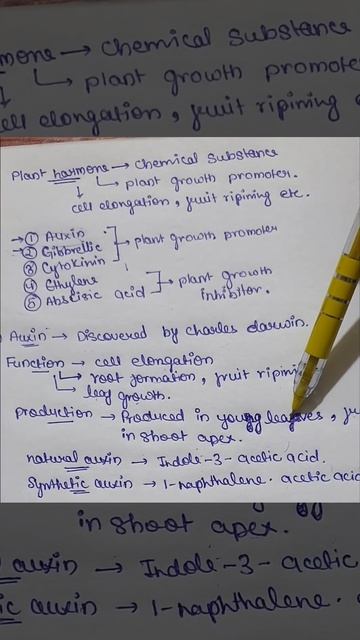 mone → chemical substance
→ plant growth promoter
cell elongation, fruit ripining
Plant harmone → chemical substance
→ plant growth promoter.
cell elongation, fruit ripining etc.
→ ① Auxin
→ ② Gibbrellic
③ Cytokinin
→ plant growth promoter
④ Ethylene
⑤ Abscisic acid
→ plant growth
inhibitor.
Auxin → Discovered by charles darwin.
Function → cell elongation
→ root formation, fruit ripining
→ leaf growth.
Production → Produced in young leaves,
in shoot apex.
natural auxin → Indole-3-acetic acid.
Synthetic auxin → 1-naphthalene. acetic acid
in shoot apex.
auxin → Indole-3-acetic
ic auxin → 1-naphthalene.